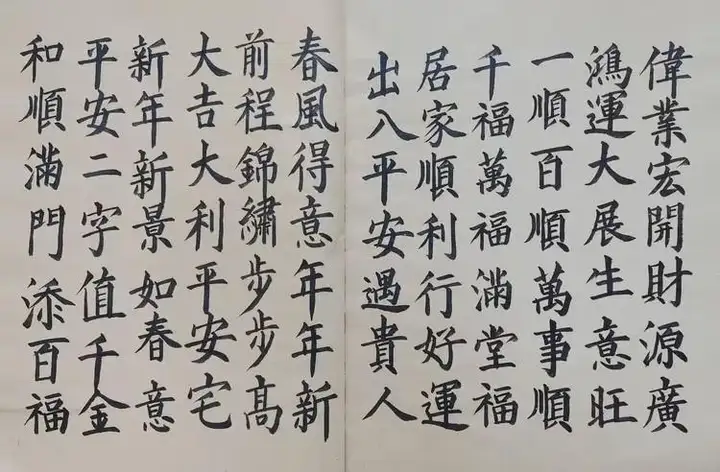 偉業宏開財源廣
鴻運大展生意旺
一順百順萬事順
千福萬福滿堂福
居家順利行好運
出入平安遇貴人
春風得意年年新
前程錦繡步步高
大吉大利平安宅
新年新景如春意
平安二字值千金
和順滿門添百福